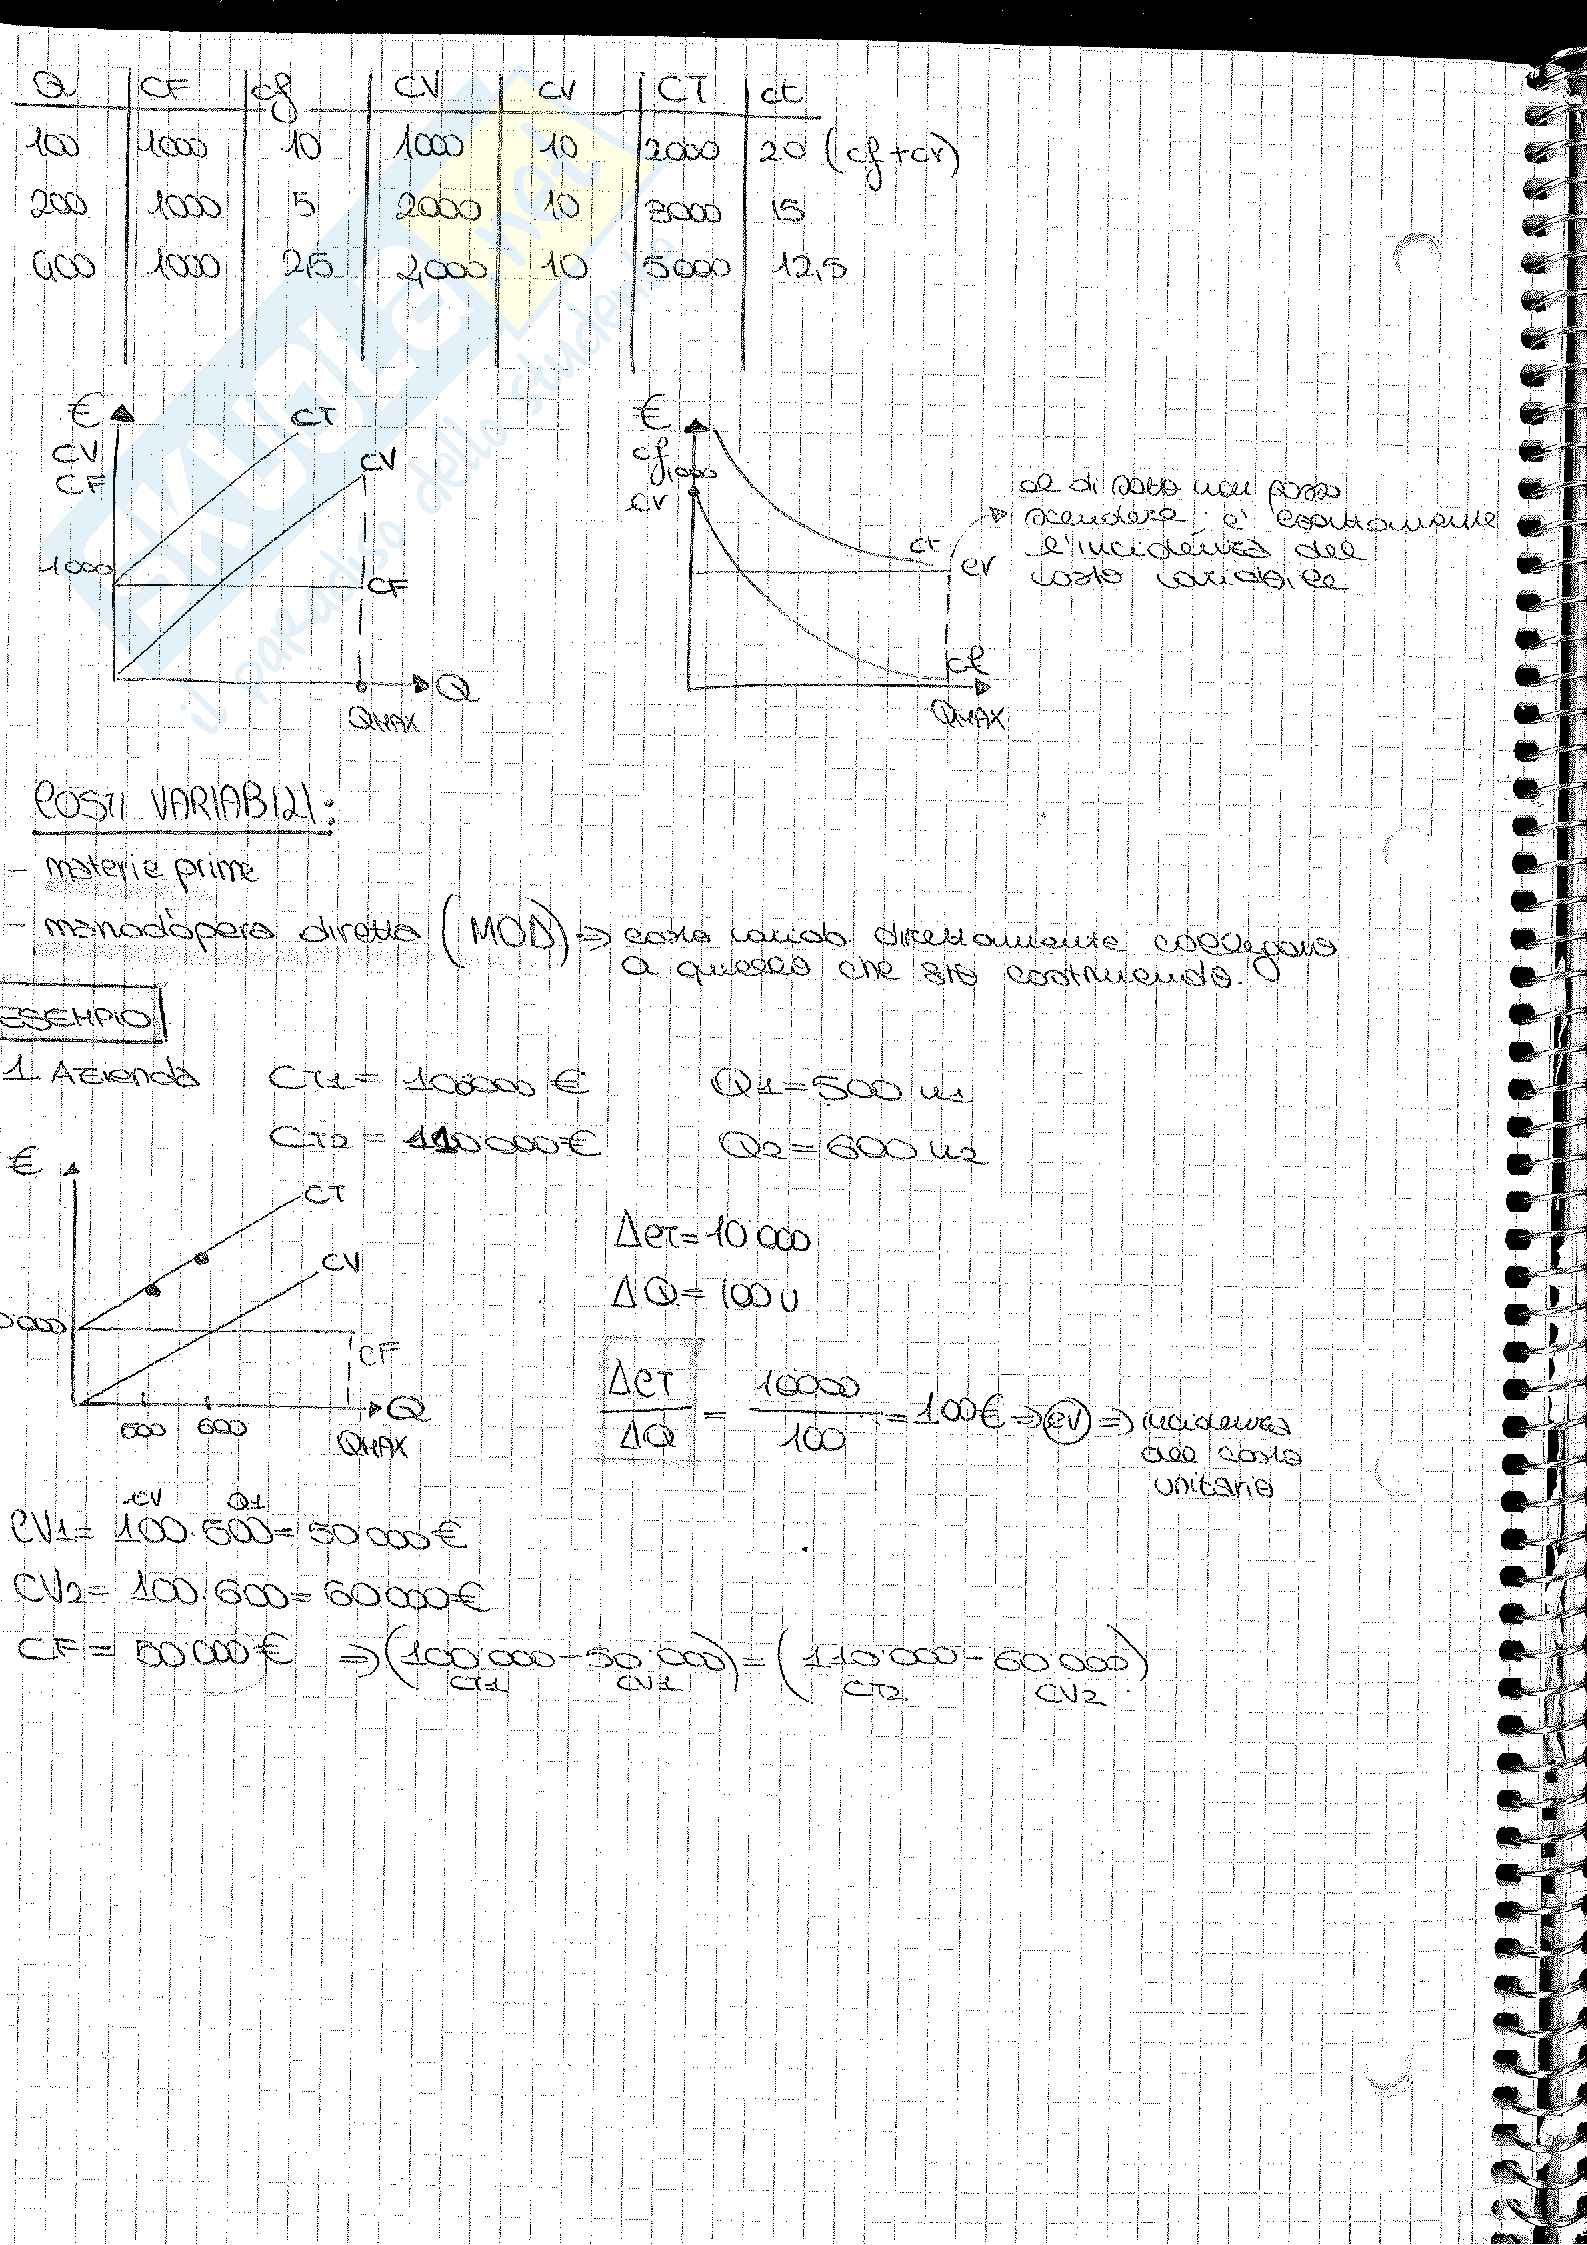 Q CF cf CV cv CT ct
100 1000 10 1000 10 2000 20 (cf+cv)
200 1000 5 2000 10 3000 15
400 1000 2,5 4000 10 5000 12,5
€ CT
CV
CF
CV
1000
CF
Q
QMAX
€
cf 1,000
cv
ct
cv
cf
QMAX
al di sotto non posso
scendere; è esattamente
l'incidenza del
costo variabile
COSTI VARIABILI:
- materie prime
- manodopera diretta (MOD) ⇒ costo lavoro direttamente collegato
a quello che sto costruendo.
ESEMPIO
1 Azienda CT1 = 100000 € Q1 = 500 u1
CT2 = 110000 € Q2 = 600 u2
€
CT
CV
0000
CF
Q
500 600
QMAX
ΔCT = 10'000
ΔQ = 100 u
ΔCT / ΔQ = 10000 / 100 = 100 € ⇒ cv ⇒ incidenza
del costo
unitario
cv Q1
CV1 = 100·500 = 50'000 €
CV2 = 100·600 = 60'000 €
CF = 50'000 € ⇒ (100'000 - 50'000) = (110'000 - 60'000)
CT1 CV1 CT2 CV2